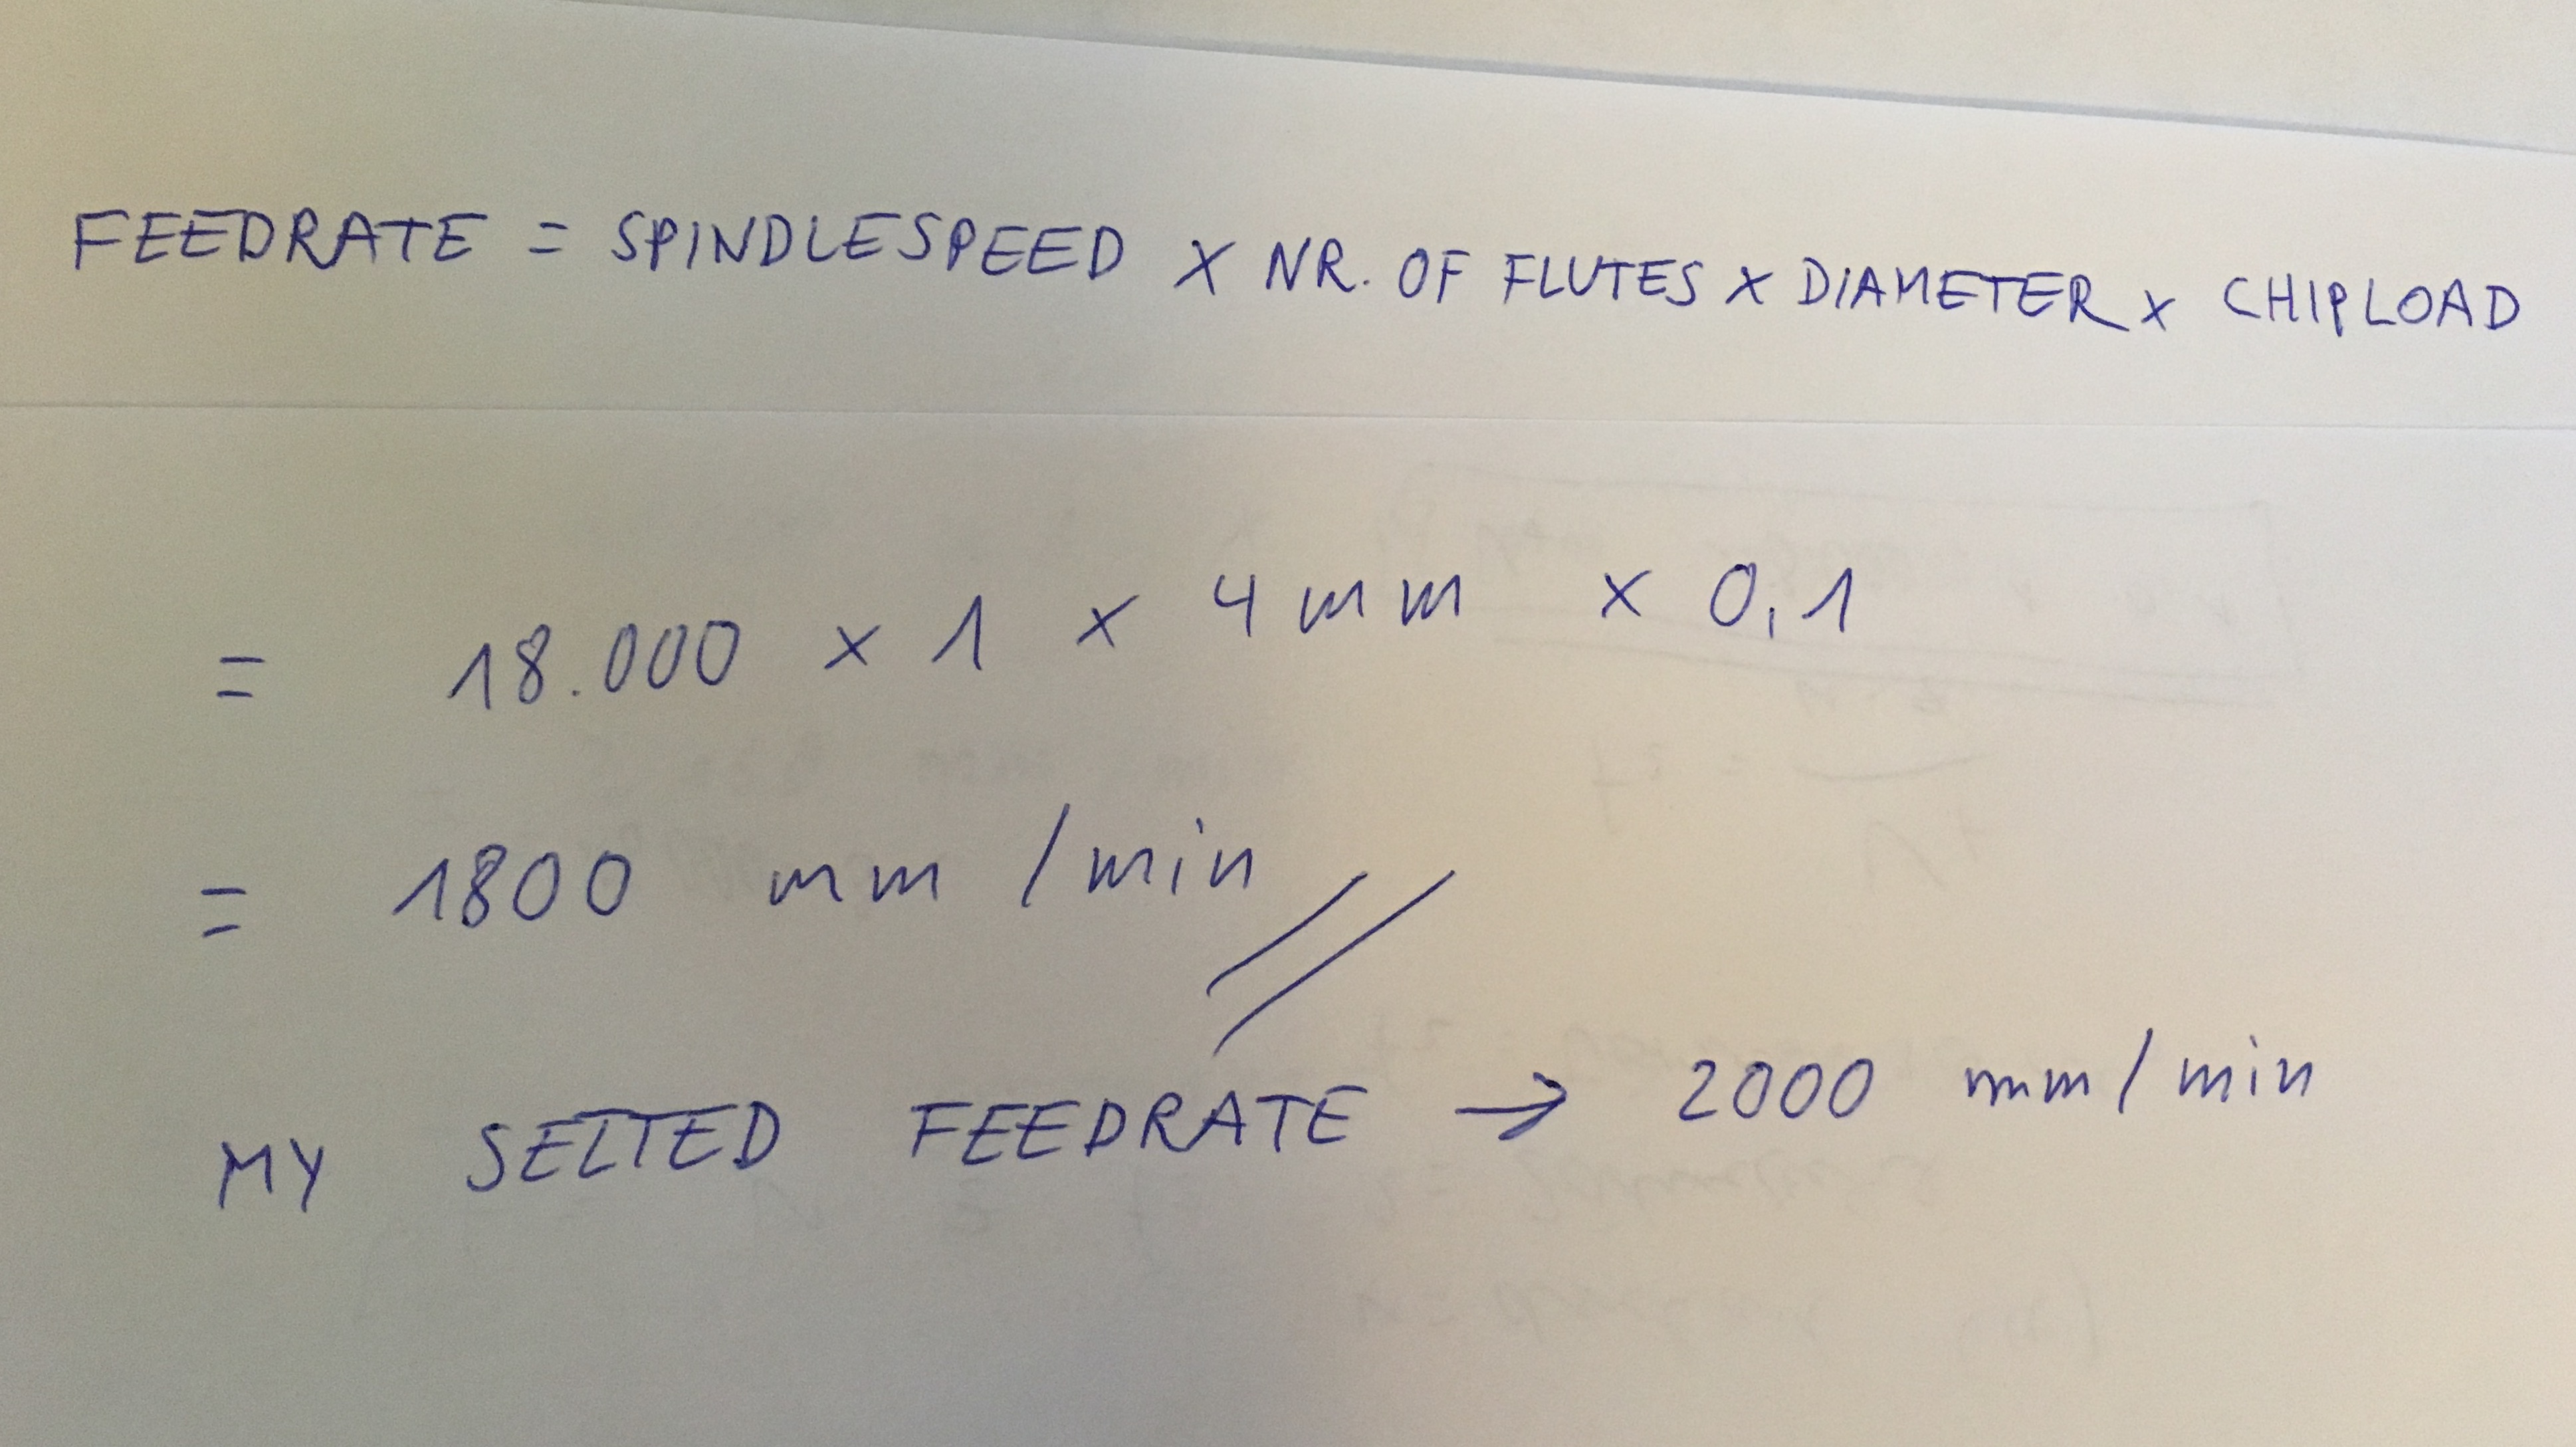 FEEDRATE = SPINDLESPEED X NR. OF FLUTES X DIAMETER X CHIPLOAD
= 18.000 x 1 x 4mm x 0,1
= 1800 mm/min
MY SELTED FEEDRATE → 2000 mm/min